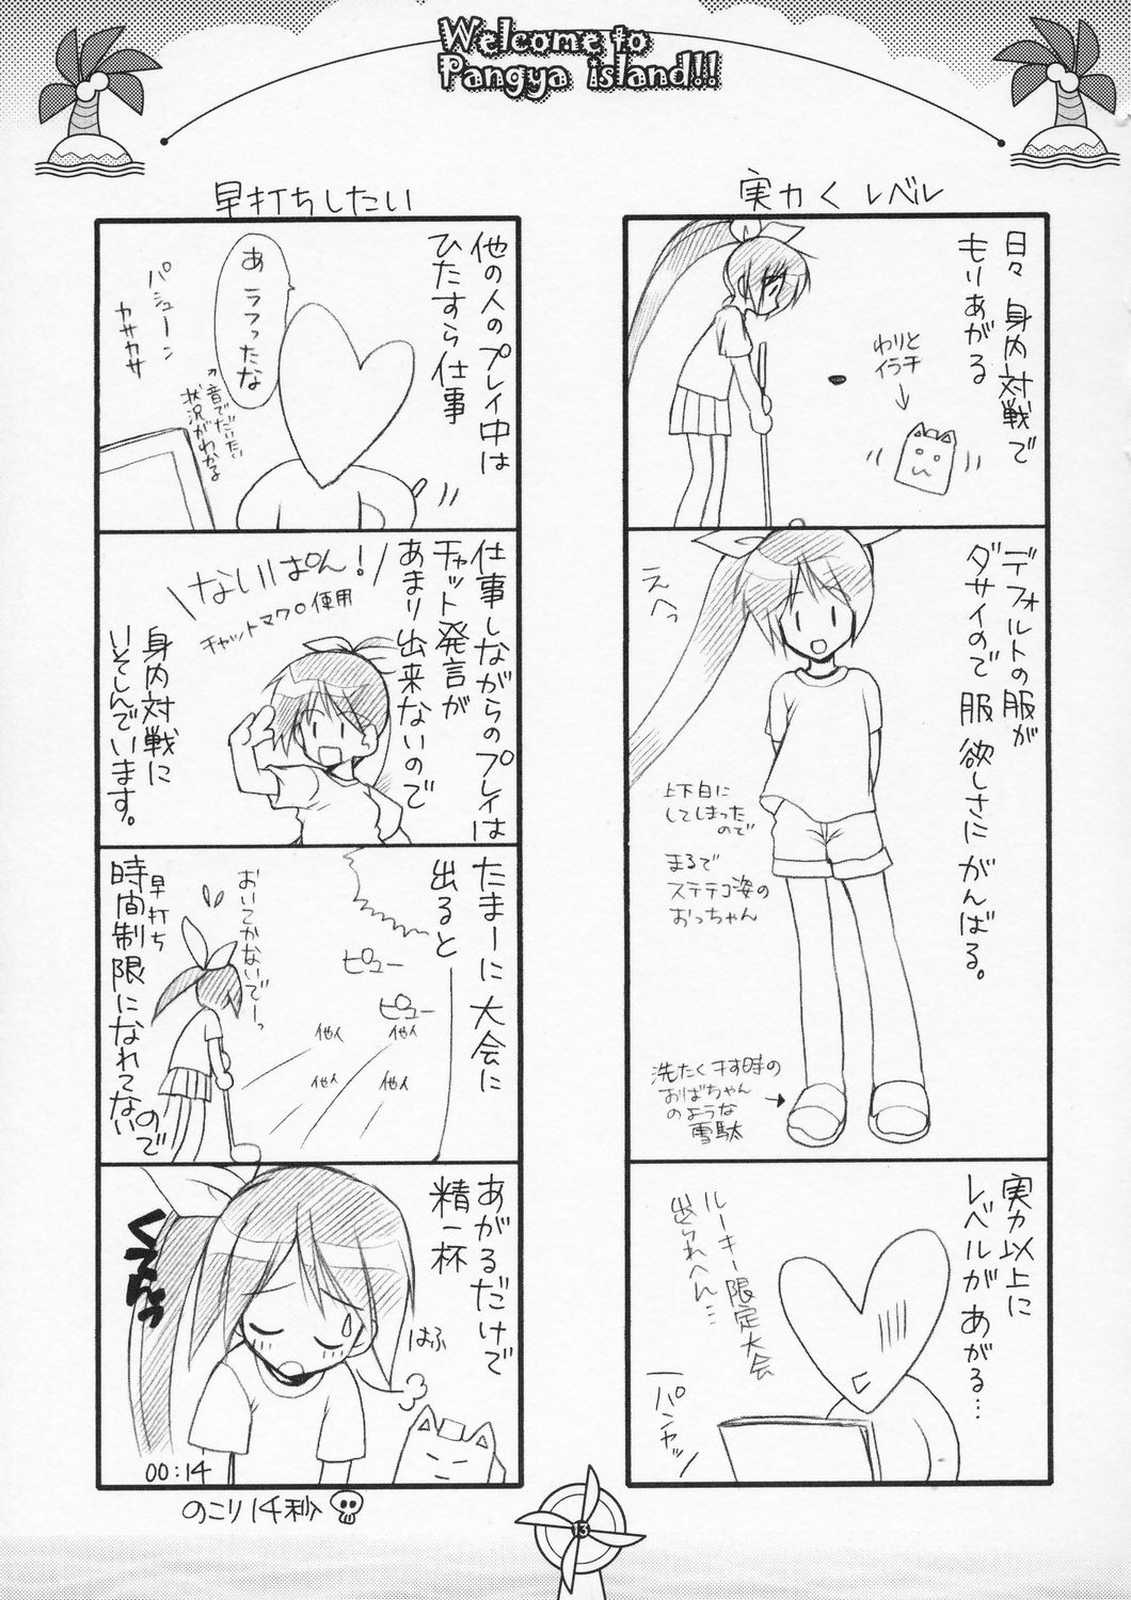 Welcome to
Pangya island!!
実力くレベル
日々身内対戦で
もりあがる
わりと
イラチ
デフォルトの服が
ダサイので服欲しさにがんばる。
えへっ
上下白に
してしまった
ので
まるで
ステテコ姿の
おっちゃん
洗たく干す時の
おばちゃん
のような
雪駄
実力以上に
レベルがあがる…
ルーキー限定大会
出られへん…
パンヤッ
早打ちしたい
他の人のプレイ中は
ひたすら仕事
あ ラフったな
パシューン
カサカサ
↑音でだいたい
状況がわかる
仕事しながらのプレイは
チャット発言が
あまり出来ないので
ないしぱん!
チャットマクロ使用
身内対戦に
いそしんでいます。
たまーに大会に
出ると
ピュー
ピュー
他人
他人
他人
他人
おいてかないでーっ
早打ち
時間制限になれてないので
あがるだけで
精一杯
はふ
00:14
のこり14秒
13